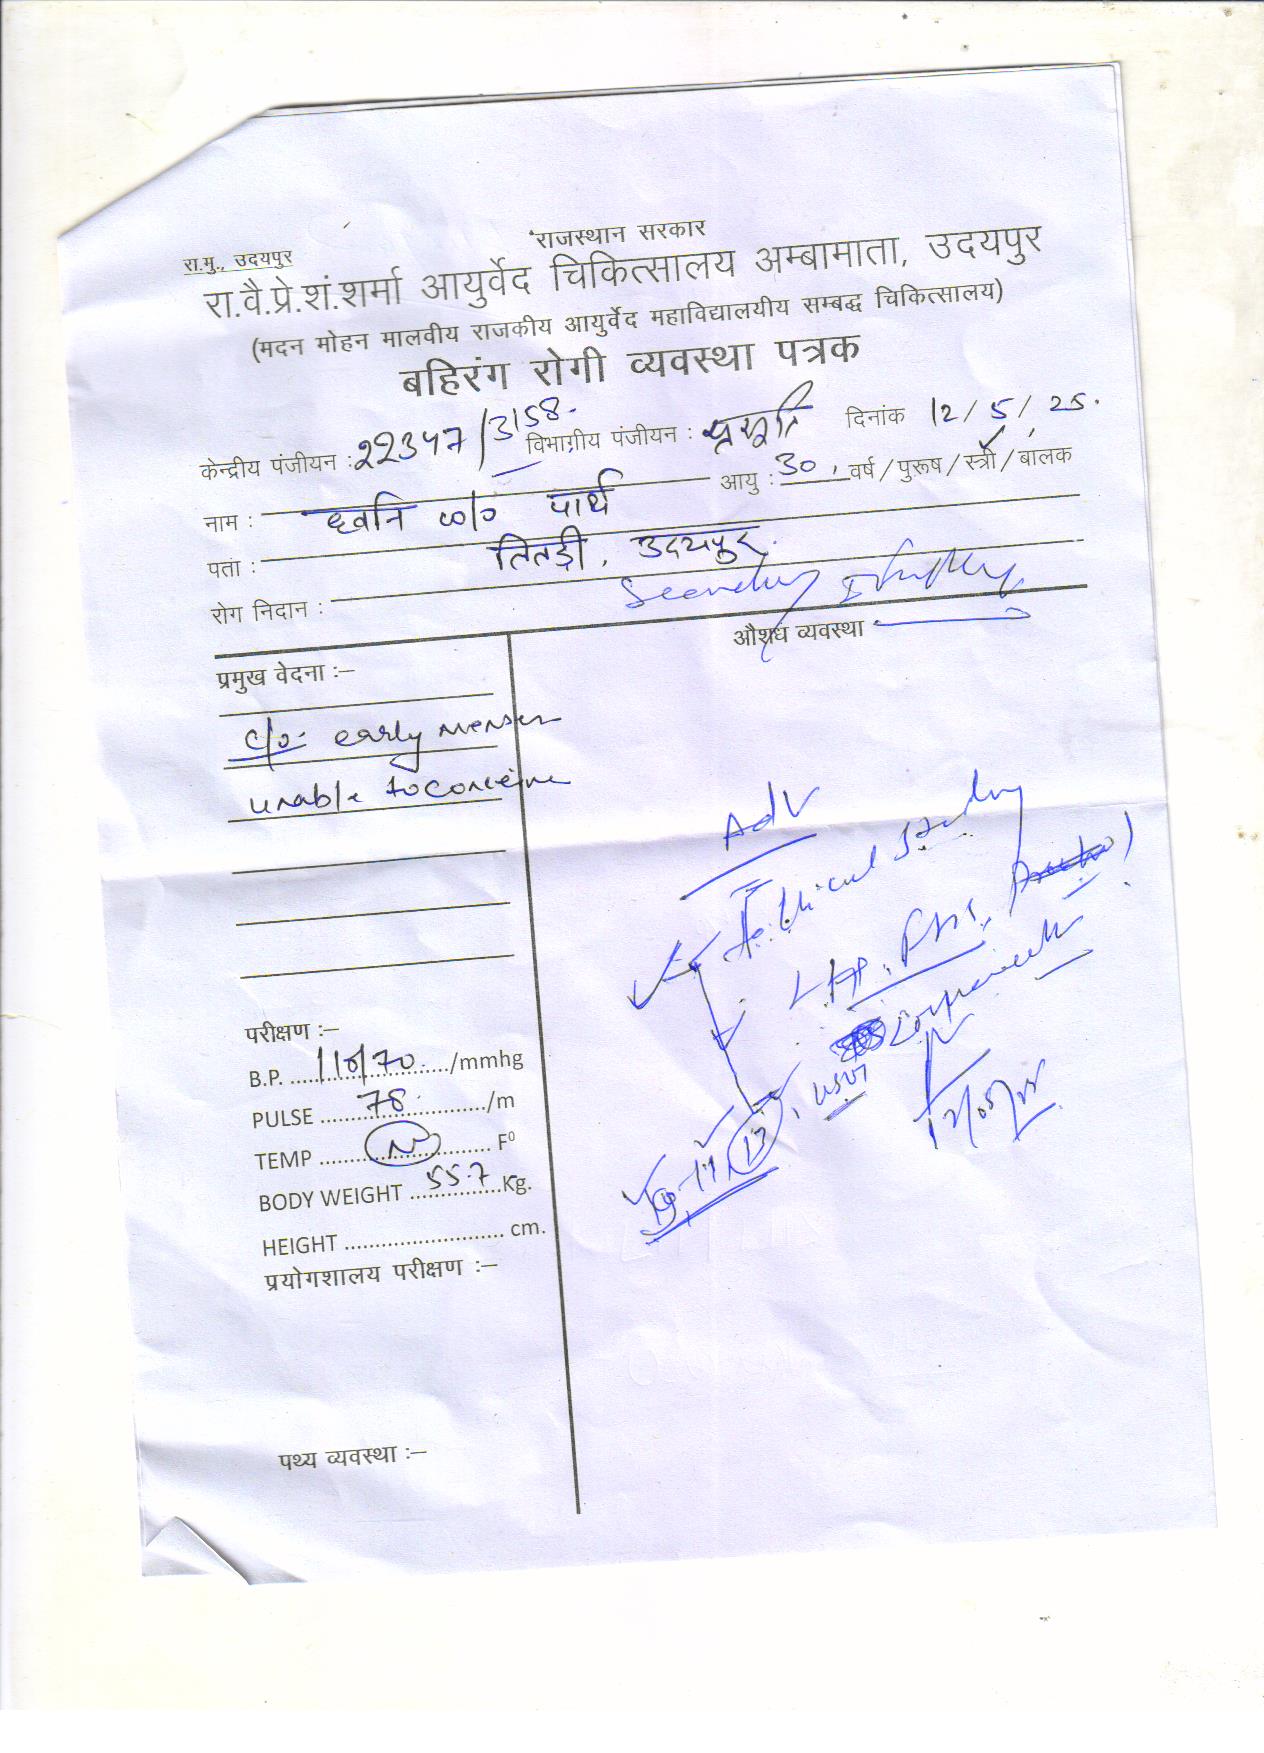 राजस्थान सरकार
रा.मु., उदयपुर
रा.वै.प्रे.शं.शर्मा आयुर्वेद चिकित्सालय अम्बामाता, उदयपुर
(मदन मोहन मालवीय राजकीय आयुर्वेद महाविद्यालयीय सम्बद्ध चिकित्सालय)
बहिरंग रोगी व्यवस्था पत्रक
केन्द्रीय पंजीयन : 22347/3158. विभागीय पंजीयन : प्रसूति दिनांक 12/5/25.
नाम : ध्वनि w/o पार्थ आयु : 30 वर्ष/पुरूष/स्त्री/बालक
पता : तितड़ी, उदयपुर.
रोग निदान : Secondary Infertility
प्रमुख वेदना :–
औशध व्यवस्था
c/o:- early menses
unable to conceive
Adv
Follicular Study
परीक्षण :–
B.P. 110/70 /mmhg
PULSE 78 /m
TEMP N F⁰
BODY WEIGHT 55.7 Kg.
HEIGHT cm.
प्रयोगशालय परीक्षण :–
पथ्य व्यवस्था :–